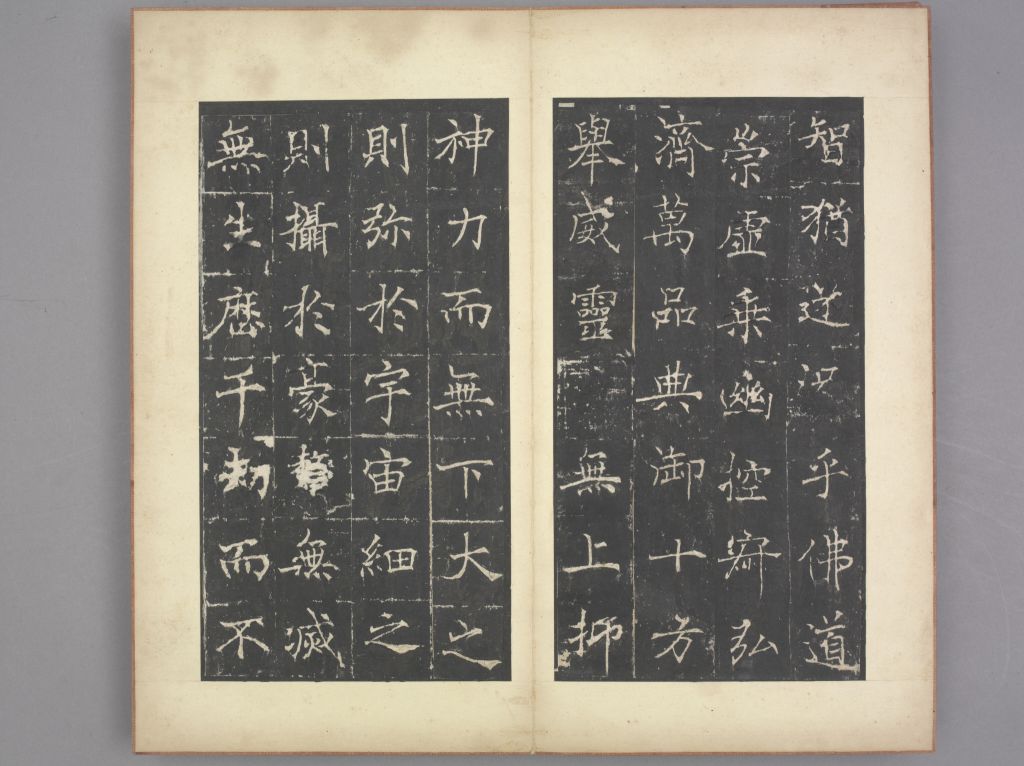 智猶迷況乎佛道
崇虛乘幽控寂弘
濟萬品典御十方
舉威靈無上抑
神力而無下大之
則弥於宇宙細之
則攝於豪釐無滅
無生歷千劫而不